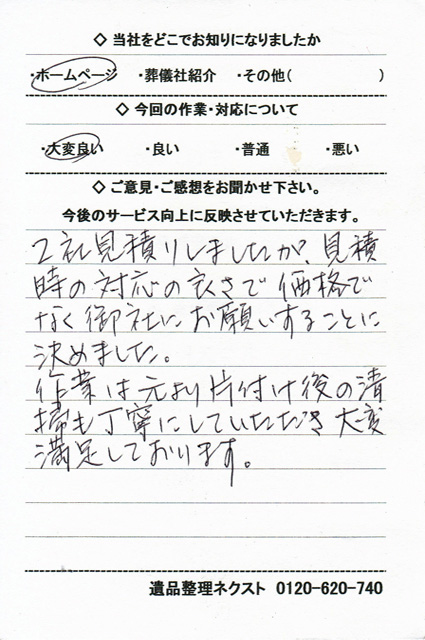 ◇ 当社をどこでお知りになりましたか
・ホームページ ・葬儀社紹介 ・その他( )
◇ 今回の作業・対応について
・大変良い ・良い ・普通 ・悪い
◇ ご意見・ご感想をお聞かせ下さい。
今後のサービス向上に反映させていただきます。
2社見積りしましたが、見積
時の対応の良さで価格で
なく御社にお願いすることに
決めました。
作業は元より片付け後の清
掃も丁寧にしていただき大変
満足しております。
遺品整理ネクスト 0120-620-740